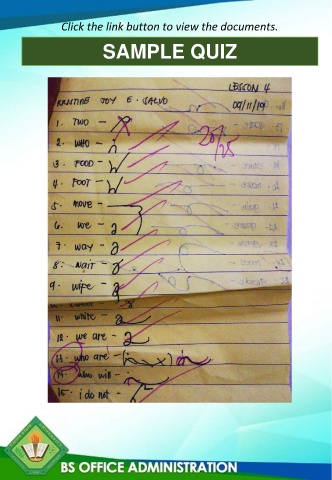 Click the link button to view the documents.
SAMPLE QUIZ
LESSON 4
KRISTINE JOY E. SALVO 09/11/19
25/25
1. TWO -
2. WHO -
3. FOOD -
4. FOOT -
5. move -
6. we -
7. way -
8. wait -
9. wife -
11. white -
12. we are -
13. who are -
14. who will -
15. i do not -
BS OFFICE ADMINISTRATION